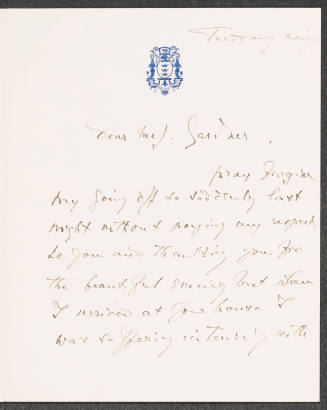 Tuesday
Dear Mrs. Gardner,
pray forgive
my going off so suddenly last
night without paying my respects
to you and thanking you for
the beautiful evening but when
I arrived at your house I
was suffering intensely with